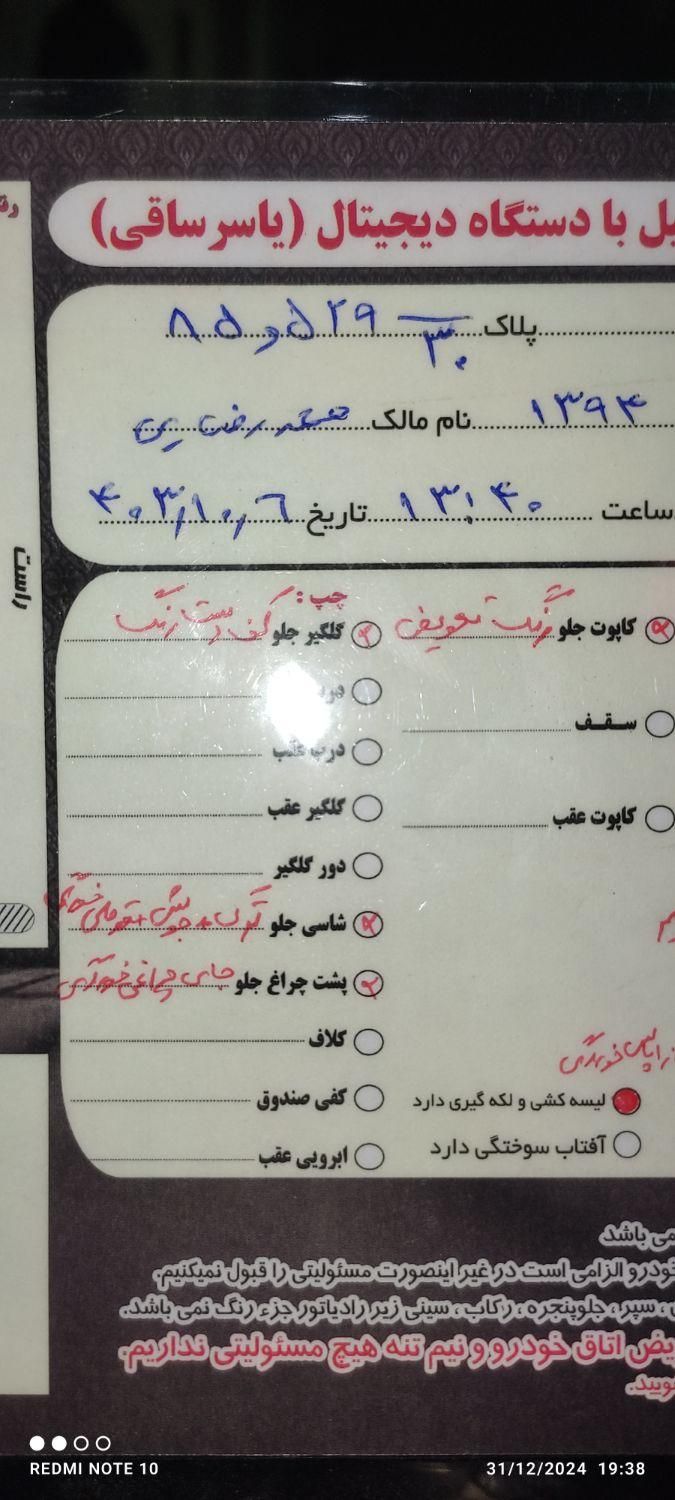 یل با دستگاه دیجیتال (یاسر ساقی)
پلاک ۸۵ و ۵۲۹ ۳۰
۱۳۹۴ نام مالک رضایی
ساعت ۱۳:۴۰ تاریخ ۴۰۳,۱۰,۶
چپ :
کاپوت جلو رنگ تعویض
گلگیر جلو رنگ
سقف
درب
درب عقب
کاپوت عقب
گلگیر عقب
دور گلگیر
شاسی جلو
پشت چراغ جلو جای چراغی خوردگی
کلاف
خوردگی
لیسه کشی و لکه گیری دارد
کفی صندوق
آفتاب سوختگی دارد
ابرویی عقب
راست
می باشد.
خودرو الزامی است در غیر اینصورت مسئولیتی را قبول نمیکنیم.
، سپر، جلوپنجره، رکاب، سینی زیر رادیاتور جزء رنگ نمی باشد.
یض اتاق خودرو و نیم تنه هیچ مسئولیتی نداریم.
یید.
REDMI NOTE 10
31/12/2024 19:38